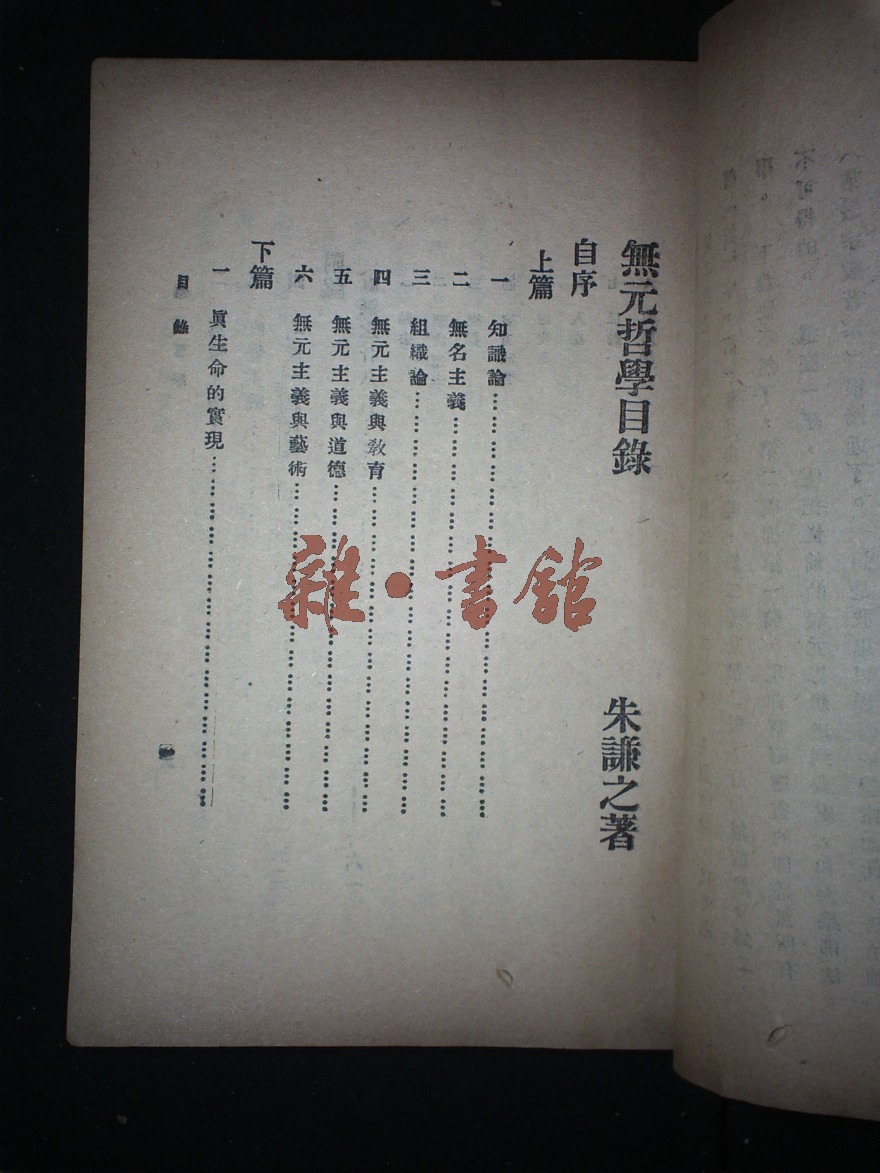 無元哲學目錄
朱謙之著
自序
上篇
一 知識論………………………………………
二 無名主義………………………………………
三 組織論………………………………………
四 無元主義與敎育………………………………………
五 無元主義與道德………………………………………
六 無元主義與藝術………………………………………
下篇
一 眞生命的實現………………………………………
目錄
雜·書館